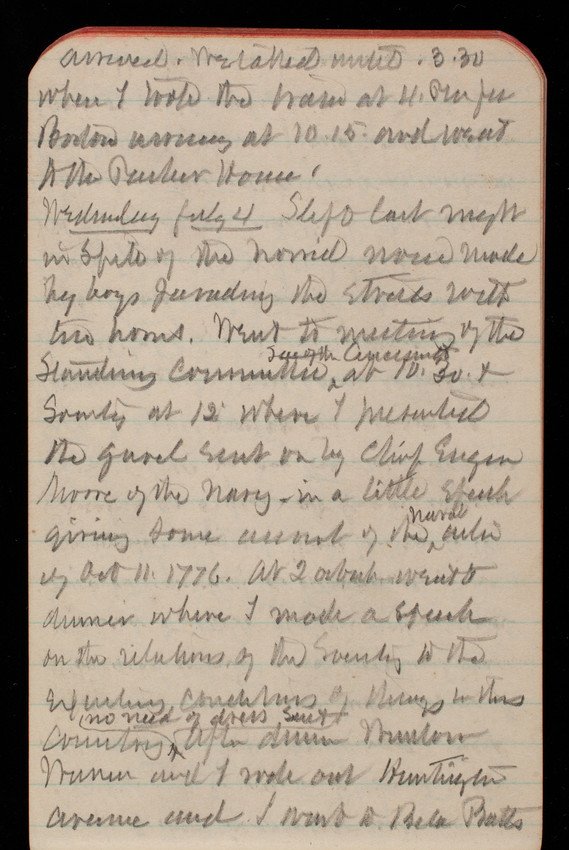 arrived. We talked until 3.30
when I took the train at 4. P.m for
Boston arriving at 10.15 and went
to the Parker House.
Wednesday July 4 Slept last night
in Spite of the horrid noise made
by boys parading the streets with
tin horns. Went to meeting of the
Standing Committee, at 10.30. &
Society at 12 where I presented
the gavel sent on by Chief Engin
Moore of the Navy - in a little Speech
giving some account of the naval action
of Oct 11. 1776. At 2 oclock went to
dinner where I made a Speech
on the relations of the Society to the
Existing Conditions of things in this
Country (no need of dress suit) After dinner Winslow
Warren and I rode out Huntington
avenue and I went to Bela Butts